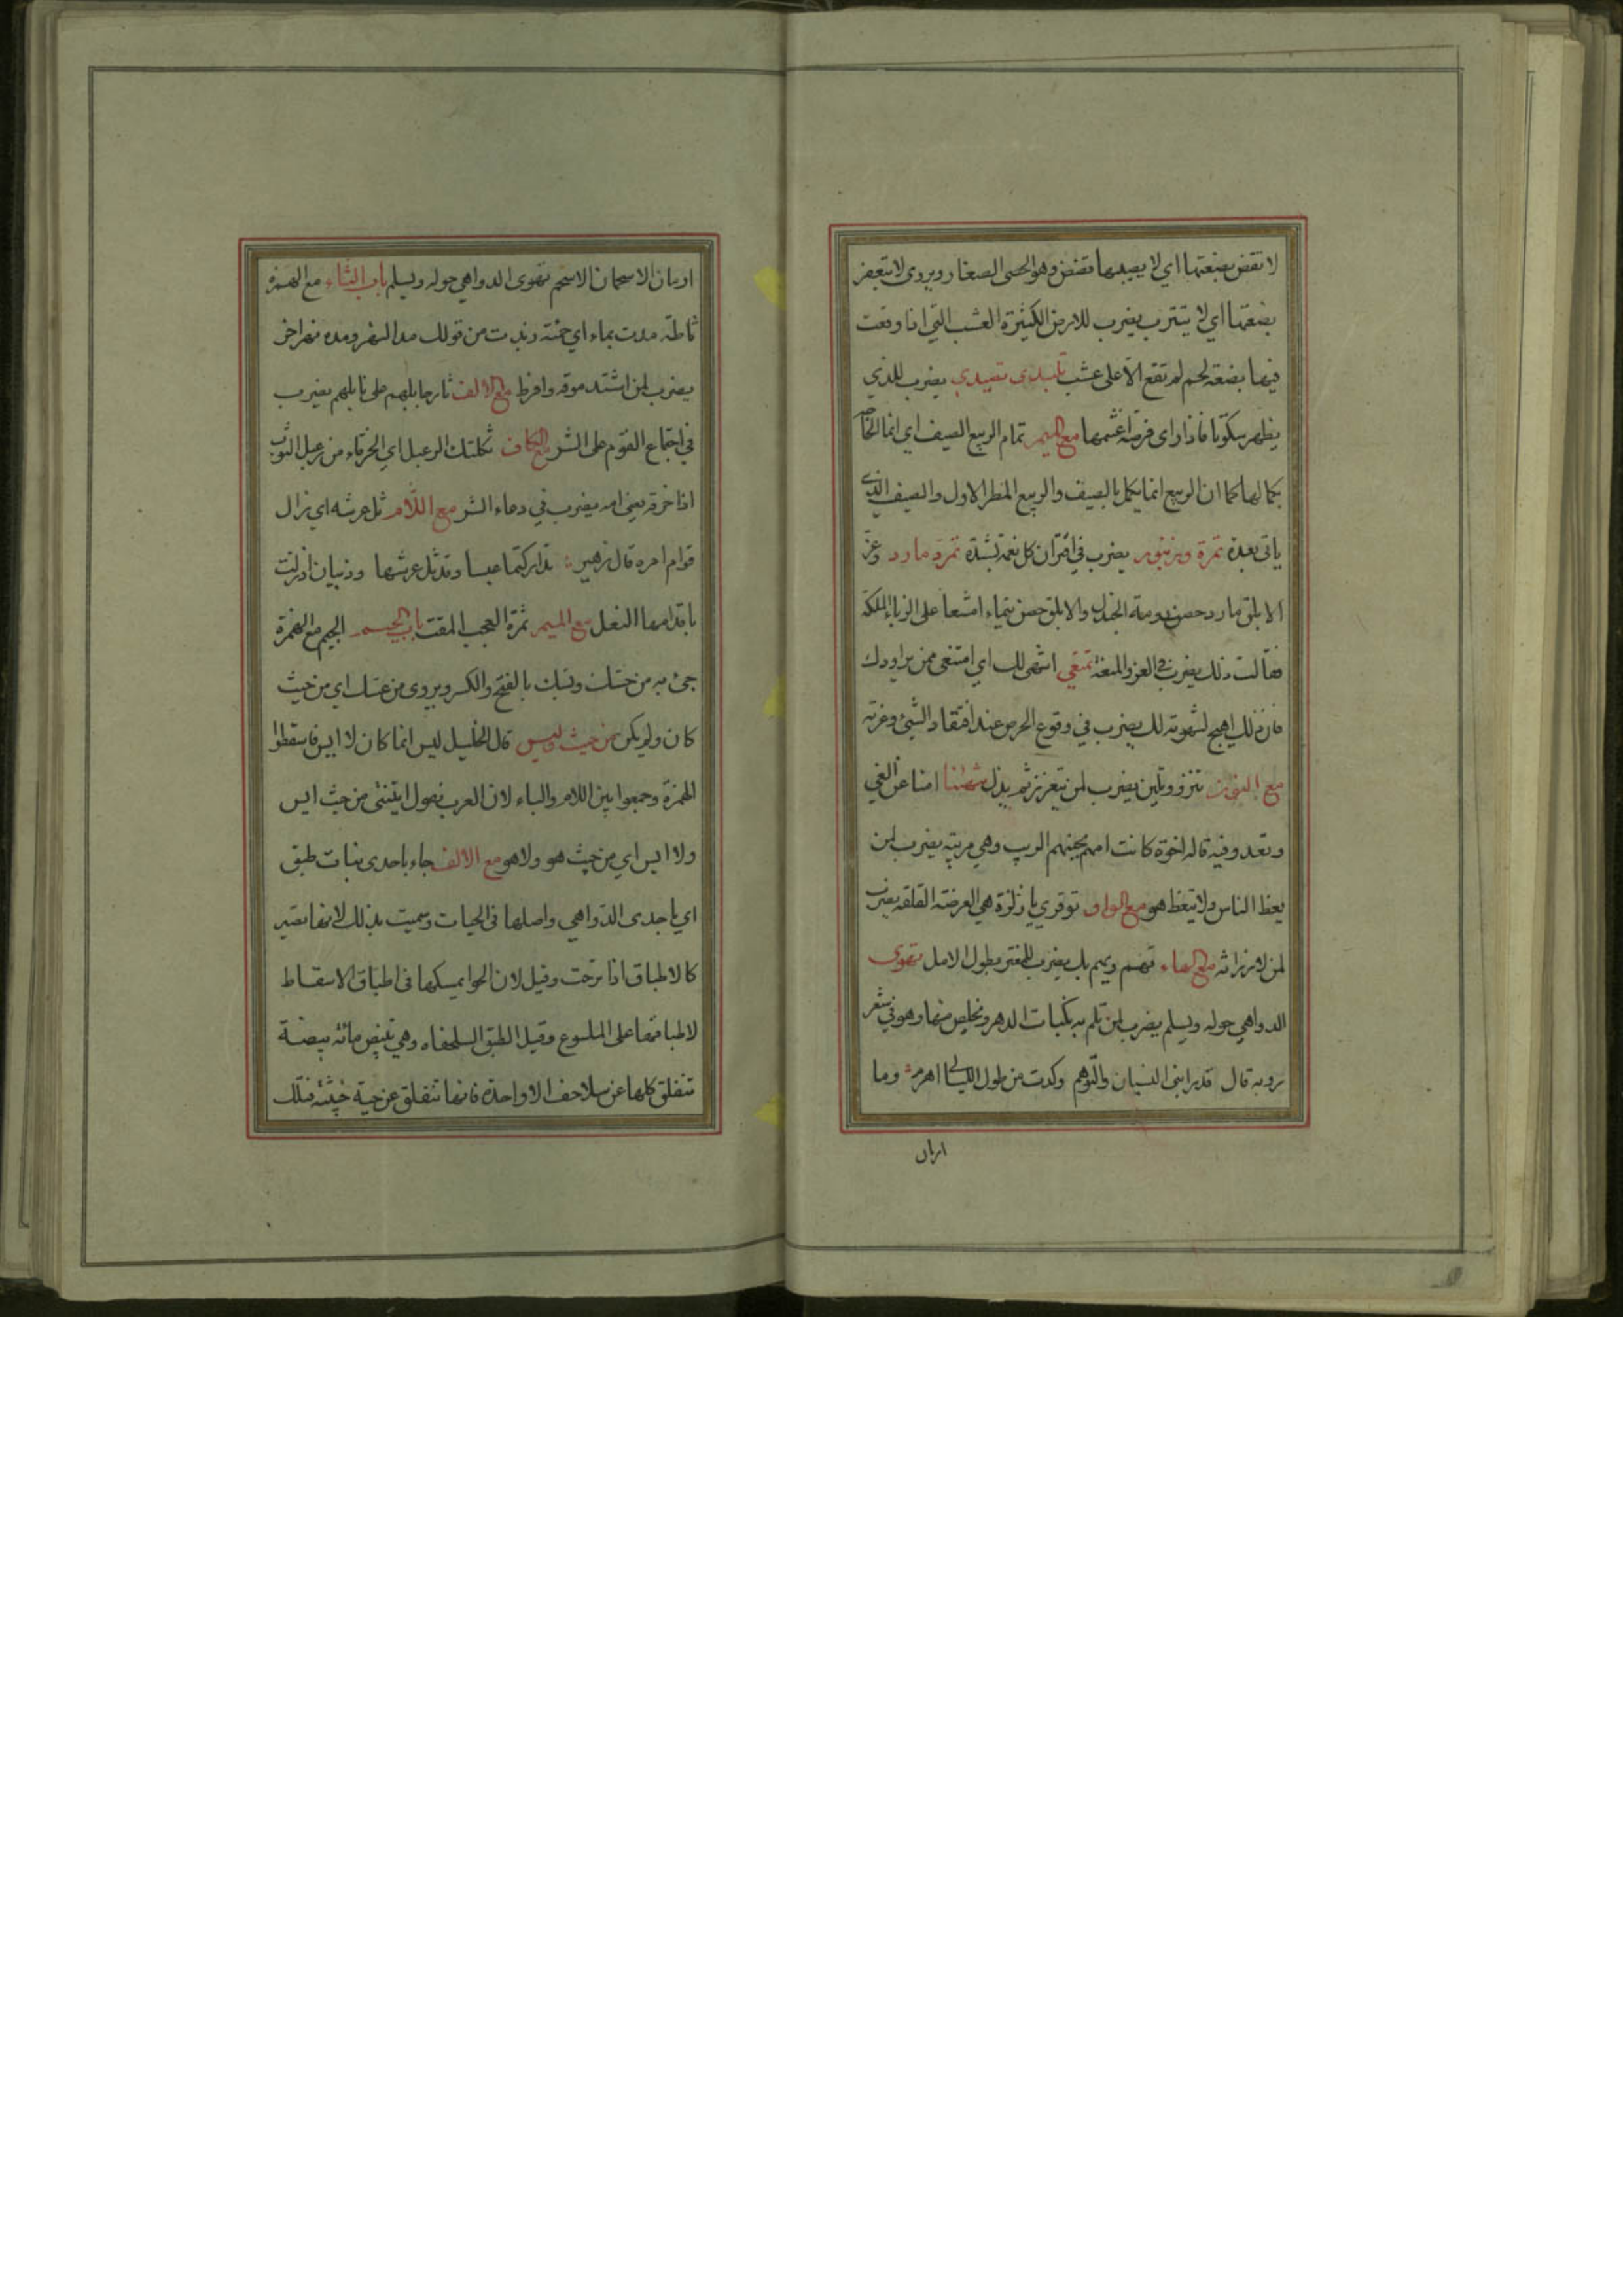 لا تقض بضعتها اي لا يصيبها قضض وهو الحصى الصغار ويروى لا تتعفر
بضعتها اي لا تتترب يضرب للارض الكثيرة العشب التي اذا وقعت
فيها بضعة لحم لم تقع الا على عشب تلبدى تصيدي يضرب للذي
يظهر سكوتا فاذا راى فرصة اغتنمها مع الميم تمام الربيع الصيف اي انما الحاجة
بكمالها كما ان الربيع انما يكمل بالصيف والربيع المطر الاول والصيف الذي
ياتى بعده تمرة وزنبور يضرب في اقتران كل نعمة بشدة تمرد مارد وعز
الابلق مارد حصن دومة الجندل والابلق حصن تيماء امتنعا على الزباء الملكة
فقالت ذلك يضرب في العز والمنعة تمنعي اشهى لك اي امتنعى ممن يراودك
فان ذلك اهيج لشهوته لك يضرب في وقوع الحرص عند افتقاد الشيء وعزته
مع النون تنزو وتلين يضرب لمن يتعزز ثم يذل تنهانا امنا عن الغي
وتغدو فيه قاله اخوة كانت امهم تجيئهم الريب وهي مريبة يضرب لمن
يعظ الناس ولا يتعظ هو مع الواو توقري يا زلزة هي العرضة القلقة يضرب
لمن لا رزانة مع الهاء تهم ويهم بك يضرب للمغتر بطول الامل تهوى
الدواهي حوله ويسلم يضرب لمن تلم به نكبات الدهر ويخلص منها وهو في شعر
روبة قال قد رابنى النسيان والتوهم وكدت من طول الليالي اهرم وما
اربان
اربان الاسحمان الاسحم تهوى الدواهي حوله ويسلم باب الثاء مع الهمزة
ثاطة مدت بماء اي حمئة زيدت من قولك مد النهر ومده نهر اخر
يضرب لمن اشتد موقه وافرط مع الالف ثار حابلهم على نابلهم يضرب
في اجتماع القوم على الشر مع الكاف ثكلتك الرعبل اي الخرقاء من رعبل الثوب
اذا خرقه يعنى امه يضرب في دعاء الشر مع اللام ثل عرشه اي زال
قوام امره قال زهير تداركتما عبسا وقد ثل عرشها وذبيان اذ زلت
باقدامها النعل مع الميم ثمرة العجب المقت باب الجيم الجيم مع الهمزة
جئ به من حسك وبسك بالفتح والكسر ويروى من عسك اي من حيث
كان ولم يكن من حيث وليس قال الخليل ليس انما كان لا ايس فاسقطوا
الهمزة وجمعوا بين اللام والياء لان العرب تقول ايتنى من حيث ايس
ولا ايس اي من حيث هو ولا هو مع الالف جاء باحدى بنات طبق
اي باحدى الدواهي واصلها فى الحيات وسميت بذلك لانها تصير
كالاطباق اذا ترحت وقيل لان الحوا يمسكها فى اطباق الاسقاط
لاطباقها على الملسوع وقيل الطبق السلحفاه وهي تبيض مائة بيضة
تنفلق كلها عن سلاحف الا واحدة فانها تنفلق عن حية خبيثة فتلك